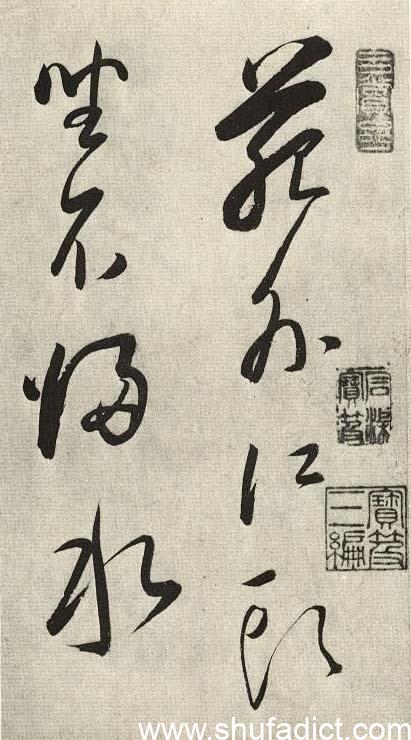 苑外江頭
坐不歸水
石渠寶笈
寶笈三編
www.shufadict.com